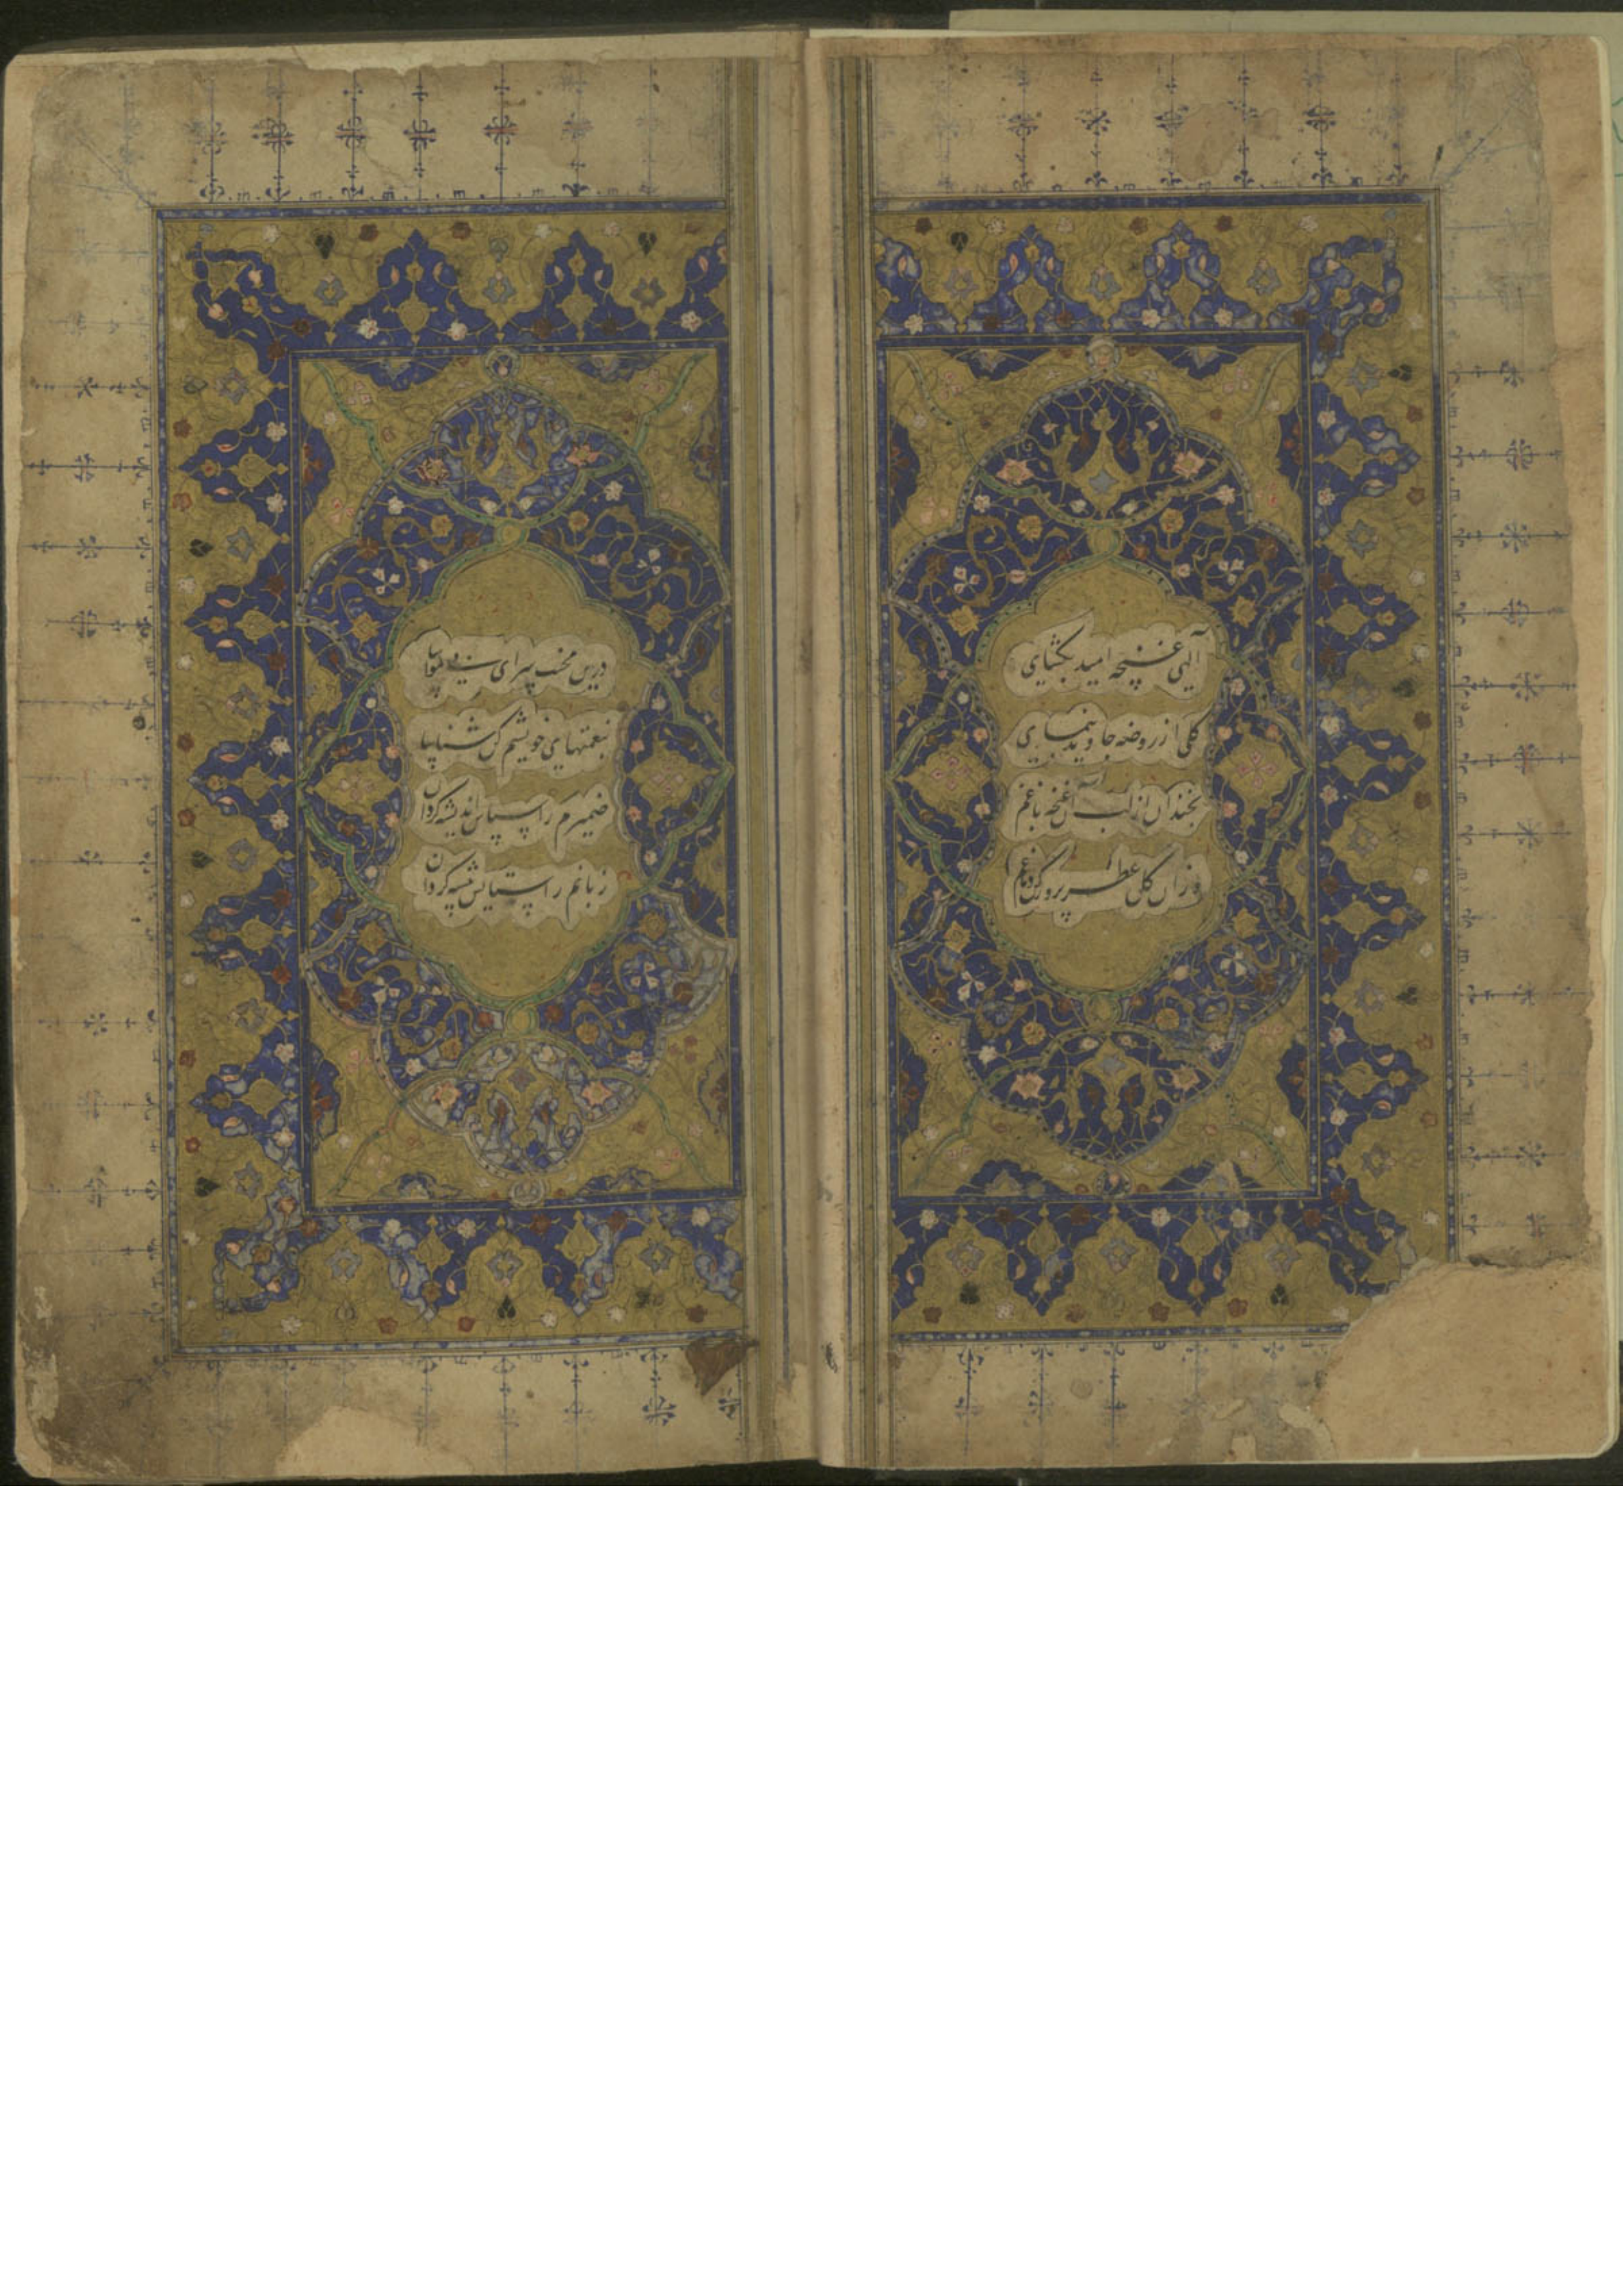 الهی غنچه امید بگشای
گلی از روضه جاوید بنمای
بخندان از لب آن غنچه باغم
وزان گل عطرپرور کن دماغم
درین محنت سرای بی مواسا
بنعمتهای خویشم کن شناسا
ضمیرم را سپاس اندیشه گردان
زبانم را ستایش پیشه گردان